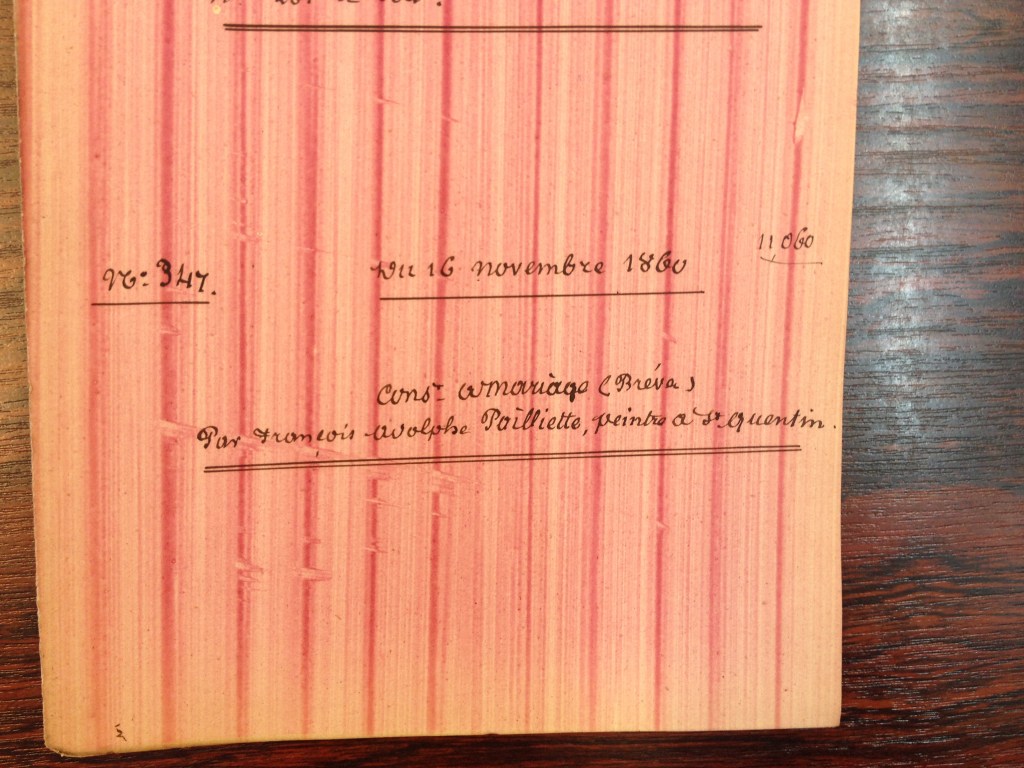 N°: 347. Du 16 novembre 1860 11 060
Cons.t à mariage (Bréva)
Par François-Adolphe Pailliette, peintre à St Quentin.